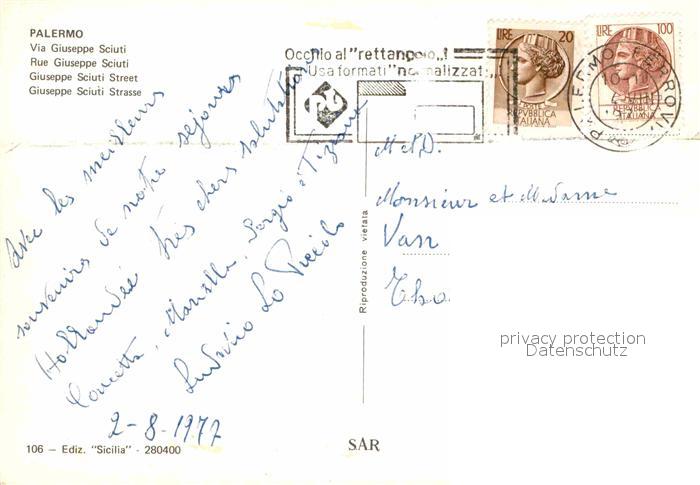 PALERMO
Via Giuseppe Sciuti
Rue Giuseppe Sciuti
Giuseppe Sciuti Street
Giuseppe Sciuti Strasse
Occhio al "rettangolo"!
Usa formati "normalizzati"
LIRE 20
POSTE
REPVBBLICA
ITALIANA
LIRE 100
REPVBBLICA
ITALIANA
PALERMO FERROVIA
Avec les meilleurs
souvenirs de notre séjours
Hollandais très chers salutations
Concetta, Marcella, Sergio e Tiziana
Ludovico Lo Piccolo
2-8-1977
Monsieur et Madame
Van
Riproduzione vietata
privacy protection
Datenschutz
106 — Ediz. "Sicilia" - 280400
SAR